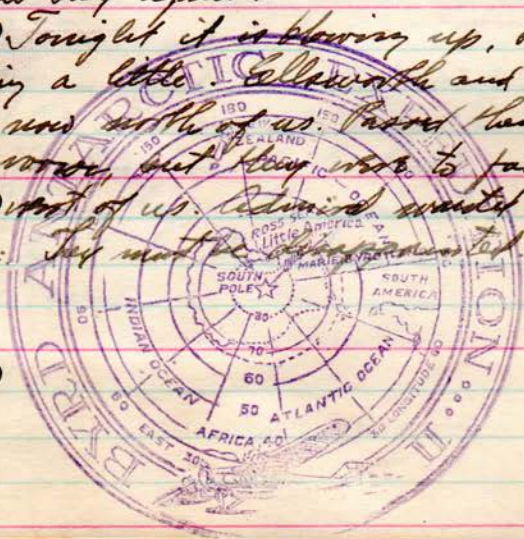 Tonight it is blowing up,
ing a little. Ellsworth and
now north of us.
but they were to
west of us Admiral wanted
They must be disappointed.
BYRD ANTARCTIC EXPEDITION II
180
150
150
NEW ZEALAND
PACIFIC OCEAN
ROSS SEA
Little America
MARIE BYRD
SOUTH POLE
SOUTH AMERICA
INDIAN OCEAN
80
70
60
50
ATLANTIC OCEAN
AFRICA 40
60 EAST 30
30 LONGITUDE 60